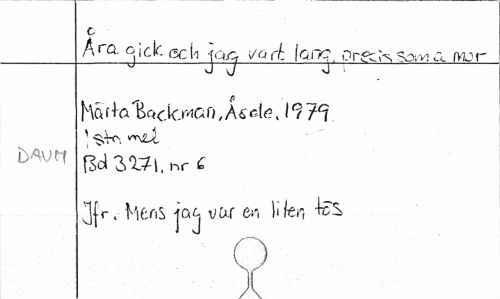 Åra gick och jag vart lang, precis som a mor
Märta Backman, Åsele, 1979
1 str. mel
DAUM
Bd 3271, nr 6
Jfr. Mens jag var en liten tös